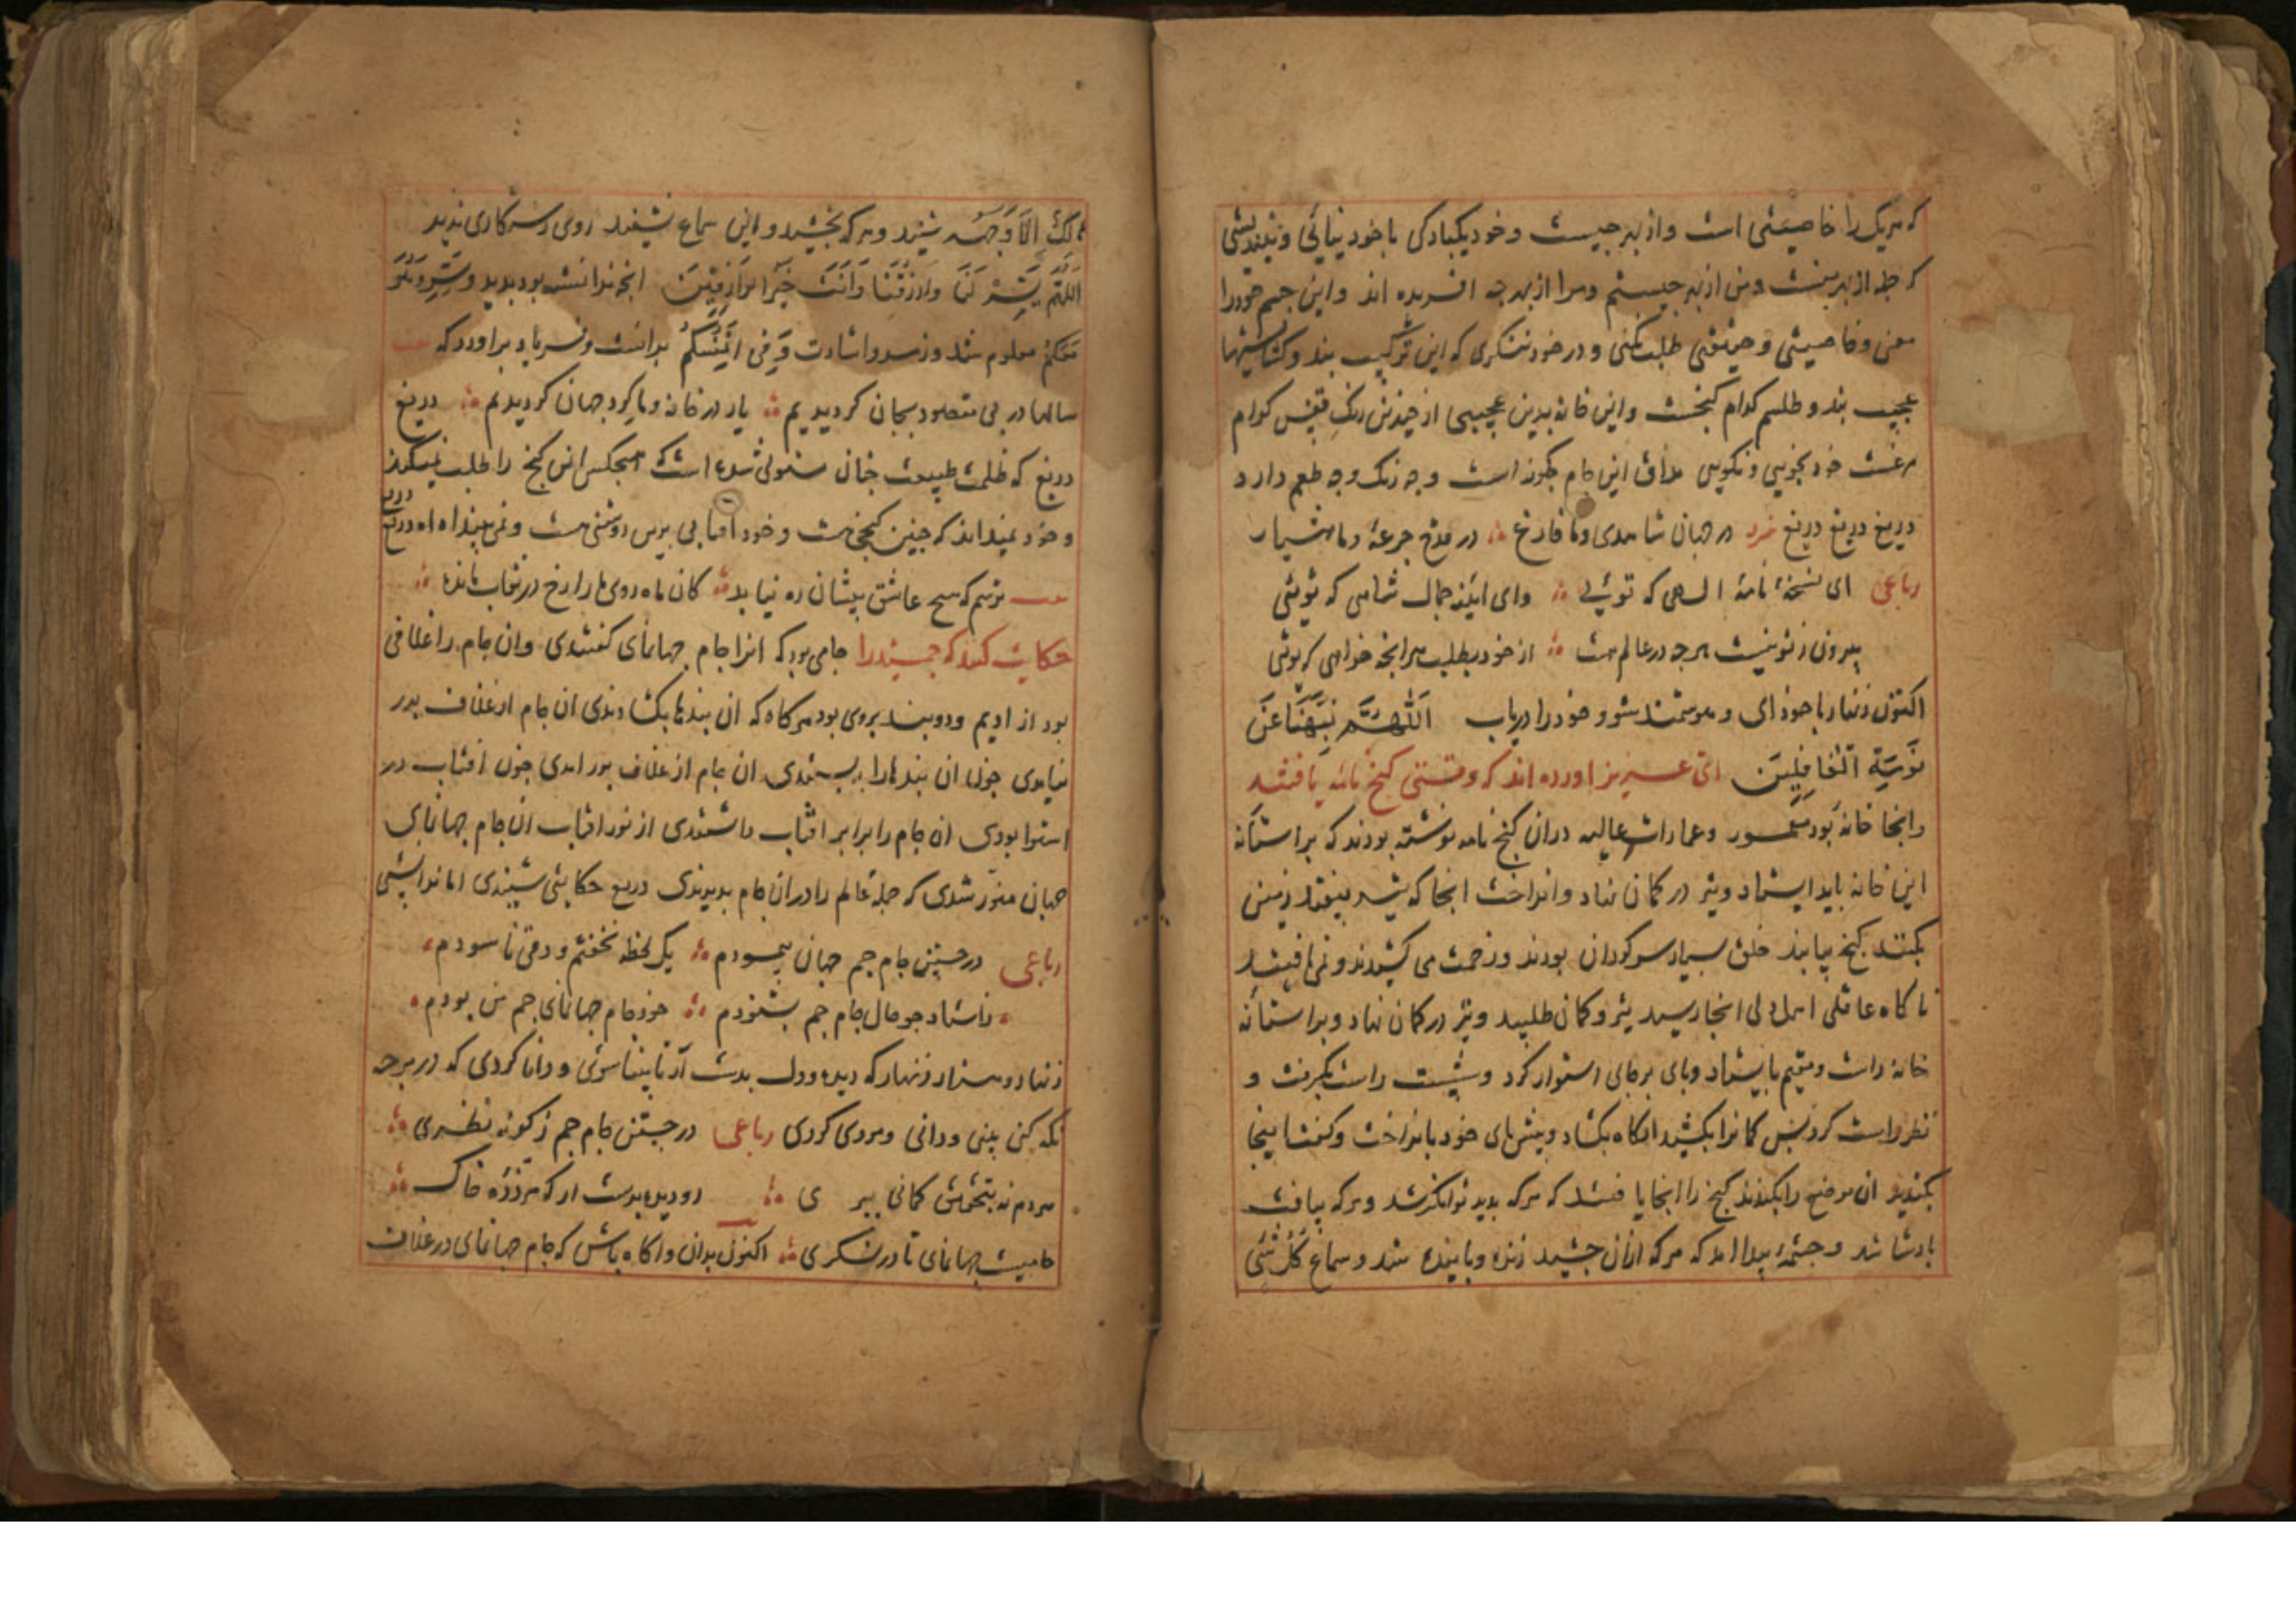 که هریک را خاصیتی است و از بهر چیست و خود یکبارکی با خود نیائی و نیندیشی
که جمله از بهر منست و من از بهر چیستم و مرا از بهر چه افریده اند و این جسم خود را
معنی و خاصیتی و حقیقتی طلب نکنی و در خود ننگری که این ترکیب بند و کشایشها
عجیب بند و طلسم کدام گنجست و این خانه بدین عجیبی از چندین رنک قفس کدام
مرغست خود نجویی و نکویی مذاق این جام چکونه است و چه رنک و چه طعم دارد
دریغ دریغ دریغ فرد در جهان شاهدی و ما فارغ در قدح جرعهٔ و ما هشیار
رباعی ای نسخهٔ نامهٔ الهی که توئی وای اینهٔ جمال شاهی که توئی
بیرون ز تو نیست هرچه در عالم هست از خود بطلب هر انچه خواهی که توئی
اکنون زنهار با خود ای و هوشمند شو و خود را دریاب اَللّٰهُمَّ نَبِّهْنَا عَنْ
نَوْمَةِ الْغَافِلِیْنَ ای عزیز اورده اند که وقتی گنج نامه یافتند
و انجا خانه بود معمور و عمارات عالیه دران گنج نامه نوشته بودند که بر استانه
این خانه باید ایستاد و تیر در کمان نهاد و انداخت انجا که تیر بیفتد زمین
بکنند گنج بیابند خلق بسیار سرکردان بودند و زحمت می کشیدند و نمی یافتند
تا کاه عاقلی اهل دلی انجا رسید تیر و کمان طلبید و تیر در کمان نهاد و بر استانه
خانه راست و مقیم بایستاد و پای بر جای استوار کرد و شست راست بگرفت و
نظر راست کرد پس کمانرا بکشید انکاه بکشاد و پیش پای خود بانداخت و کفت اینجا
بکنید ان موضع را بکندند گنج را انجا یافتند که هر که بدید توانکر شد و هر که بیافت
پادشا شد و چشمهٔ پیدا امد که هر که ازان چشید زنده و پاینده شد و سماع کُلُّ شَیْ
هَالِکٌ اِلَّا وَجْهَه شنید و هر که نچشید و این سماع نشنید روی رستکاری ندید
اَللّٰهُمَّ یَسِّرْ لَنَا وَارْزُقْنَا وَاَنْتَ خَیْرُ الرَّازِقِیْنَ انچه ندانسته بود بدید و سِرّ وَهُوَ
مَعَکُمْ معلوم شد و رمز و اشارت وَفِی اَنْفُسِکُمْ بدانست و فریاد براورد که بیت
سالها در پی مقصود بجان کردیدیم یار در خانه و ما کرد جهان کردیدیم دریغ
دریغ که ظلمت طبیعت چنان مستولی شده است که هیچکس این گنج را طلب نمیکند
و خود نمیداند که چنین گنجی هست و خود افتابی بدین روشنی هست و نمی بیند اه اه دریغ دریغ
بیت ترسم که هیچ عاشق پیشان ره نیابد کان ماه روی ما را رخ در نقاب مانده
حکایت کنند که جمشید را جامی بود که انرا جام جهانمای کفتندی و ان جام را غلافی
بود از ادیم و دو بند بروی بود هر کاه که ان بندها بکشادندی ان جام از غلاف بدر
نیامدی چون ان بندها را ببستندی ان جام از غلاف بدر امدی چون افتاب در
استوا بودی ان جام را برابر افتاب داشتندی از نور افتاب ان جام جهانمای
جهان منوّر شدی که جملهٔ عالم را دران جام بدیدندی دریغ حکایتی شنیدی اما ندانستی
رباعی در جستن جام جم جهان پیمودم یک لحظه نخفتم و دمی ناسودم
ز استاد چو حال جام جم بشنودم خود جام جهانمای جم من بودم
زنهار و هزار زنهار که دیده و دل بدست آر تا بینا شوی و دانا کردی که در هر چه
نکه کنی بینی و دانی و مردی کردی رباعی در جستن جام جم ز کوته نظری
هر دم نه بتحقیق کمانی ببری رو دیده بدست ار که هر ذرّه خاک
جامیست جهانمای تا درنکری اکنون بدان و اکاه باش که جام جهانمای در غلاف